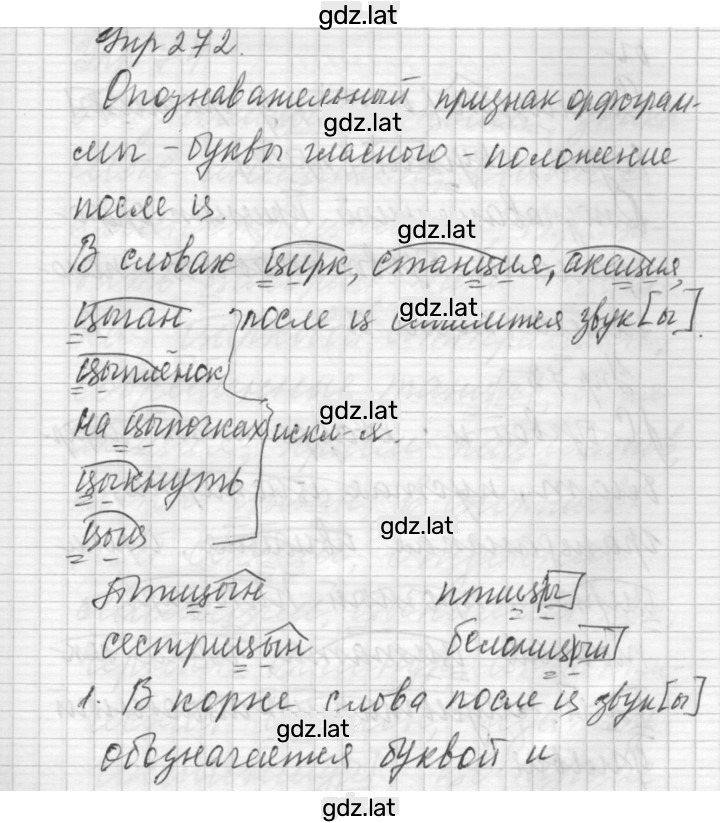 gdz.lat
Упр 272.
Опознавательный признак орфограм-
gdz.lat
мы - буквы гласного - положение
после ц.
gdz.lat
В словах цирк, станция, акация,
цыган после ц слышится звук [ы].
gdz.lat
цыплёнок
на цыпочках искл-я.
gdz.lat
цыкнуть
gdz.lat
цыц
птицын птицы
сестрицын белолицый
1. В корне слова после ц звук [ы]
gdz.lat
обозначается буквой и
gdz.lat